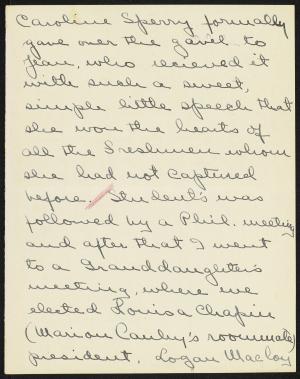 Caroline Sperry formally
gave over the gavel to
Jean, who recieved it
with such a sweet,
simple little speech that
she won the hearts of
all the Freshmen whom
she had not captured
before. Student's was
followed by a Phil. meeting
and after that I went
to a Granddaughters
meeting, where we
elected Louisa Chapin
(Marion Canby's roommate)
president. Logan MacCoy